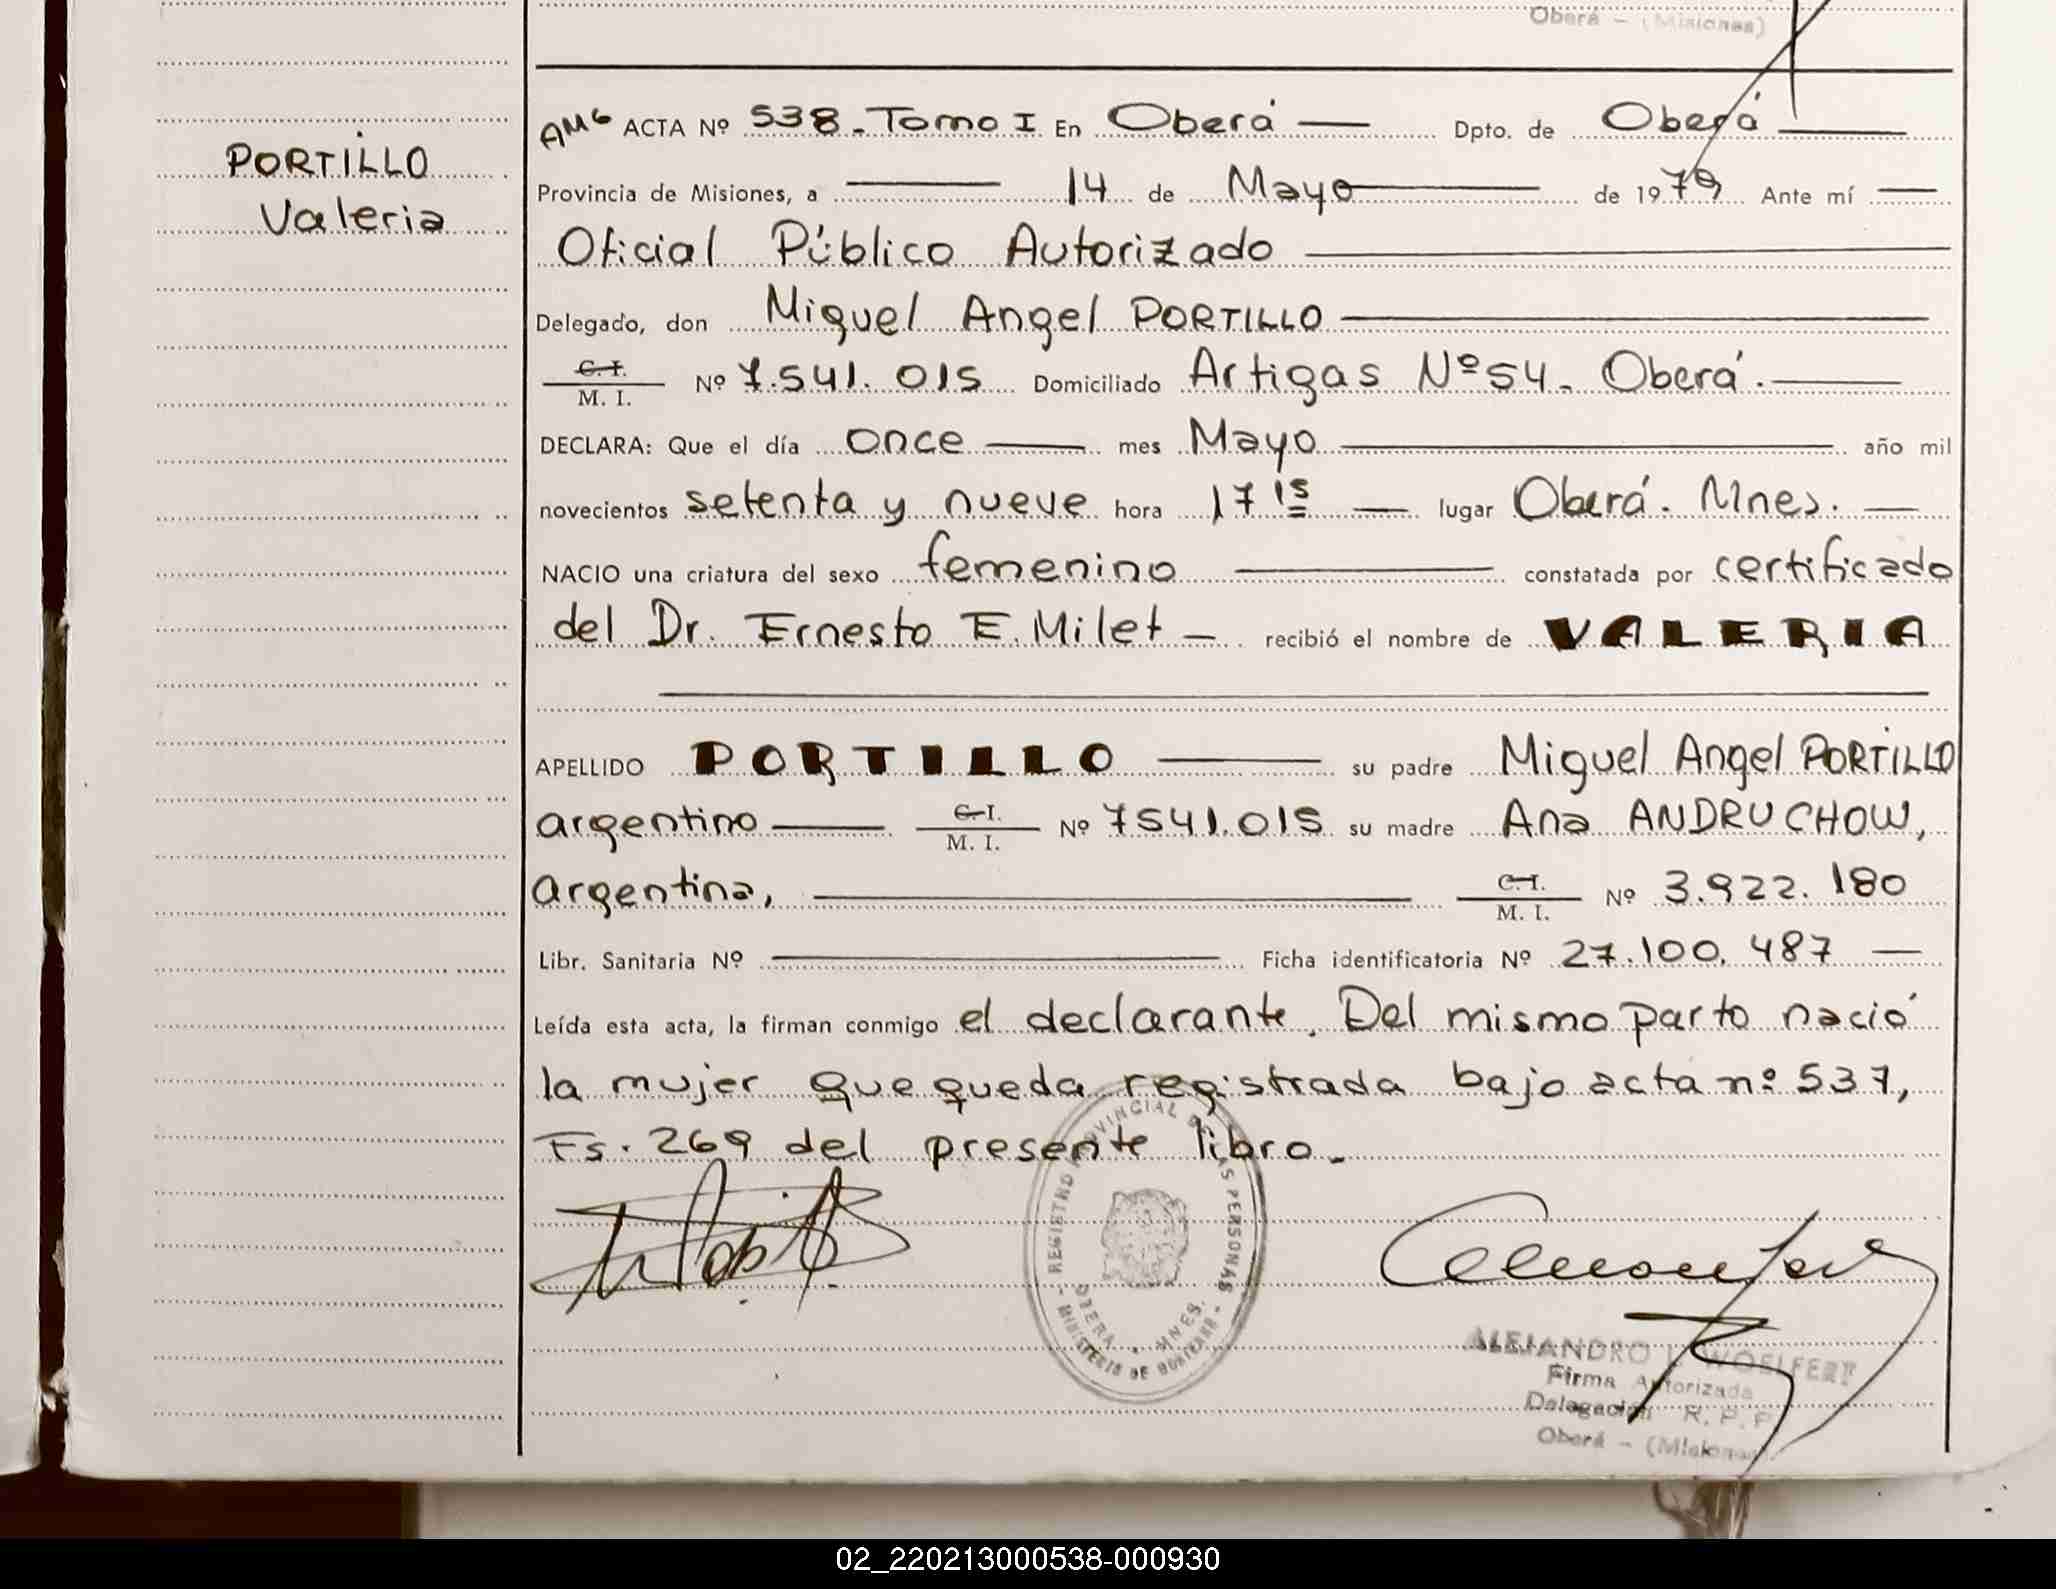 Oberá - (Misiones)
PORTILLO
Valeria
AMG ACTA Nº 538. Tomo I En Oberá Dpto. de Oberá
Provincia de Misiones, a 14 de Mayo de 1979 Ante mí
Oficial Público Autorizado
Delegado, don Miguel Angel PORTILLO
C. I.
M. I. Nº 7.541.015 Domiciliado Artigas Nº 54. Oberá.
DECLARA: Que el día once mes Mayo año mil
novecientos setenta y nueve hora 17 15 lugar Oberá. Mnes.
NACIO una criatura del sexo femenino constatada por certificado
del Dr. Ernesto E. Milet recibió el nombre de VALERIA
APELLIDO PORTILLO su padre Miguel Angel PORTILLO
argentino C. I. M. I. Nº 7541.015 su madre Ana ANDRUCHOW,
argentina, C. I. M. I. Nº 3.922.180
Libr. Sanitaria Nº Ficha identificatoria Nº 27.100.487
Leída esta acta, la firman conmigo el declarante. Del mismo parto nació
la mujer que queda registrada bajo acta nº 537,
Fs. 269 del presente libro.
REGISTRO PROVINCIAL DE LAS PERSONAS
MINISTERIO DE GOBIERNO
OBERA - MNES.
ALEJANDRO WOELFERT
Firma Autorizada
Delegación R. P. P.
Oberá - (Misiones)
02_220213000538-000930